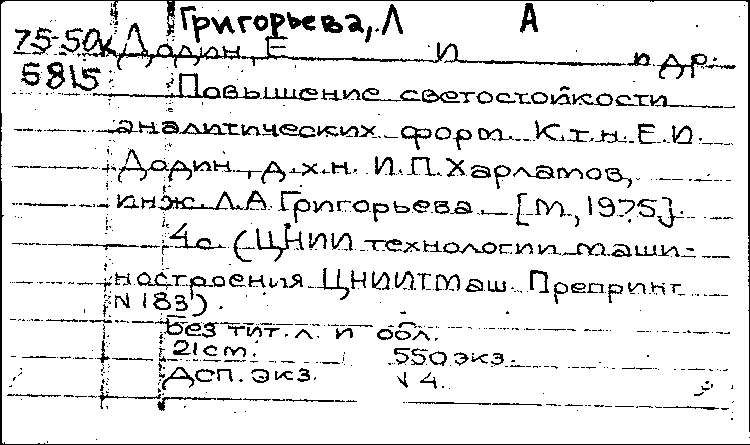 Григорьева, Л А
75-50к Додин, Е И и др.
5815
Повышение светостойкости
аналитических форм. К.т.н. Е.И.
Додин, д.х.н. И.П. Харламов,
инж. Л.А. Григорьева. [М., 1975].
4с. (ЦНИИ технологии маши-
ностроения ЦНИИТМаш. Препринт
N 183).
Без тит. л. и обл.
21 cm. 550 экз.
ДСП. экз. № 4.